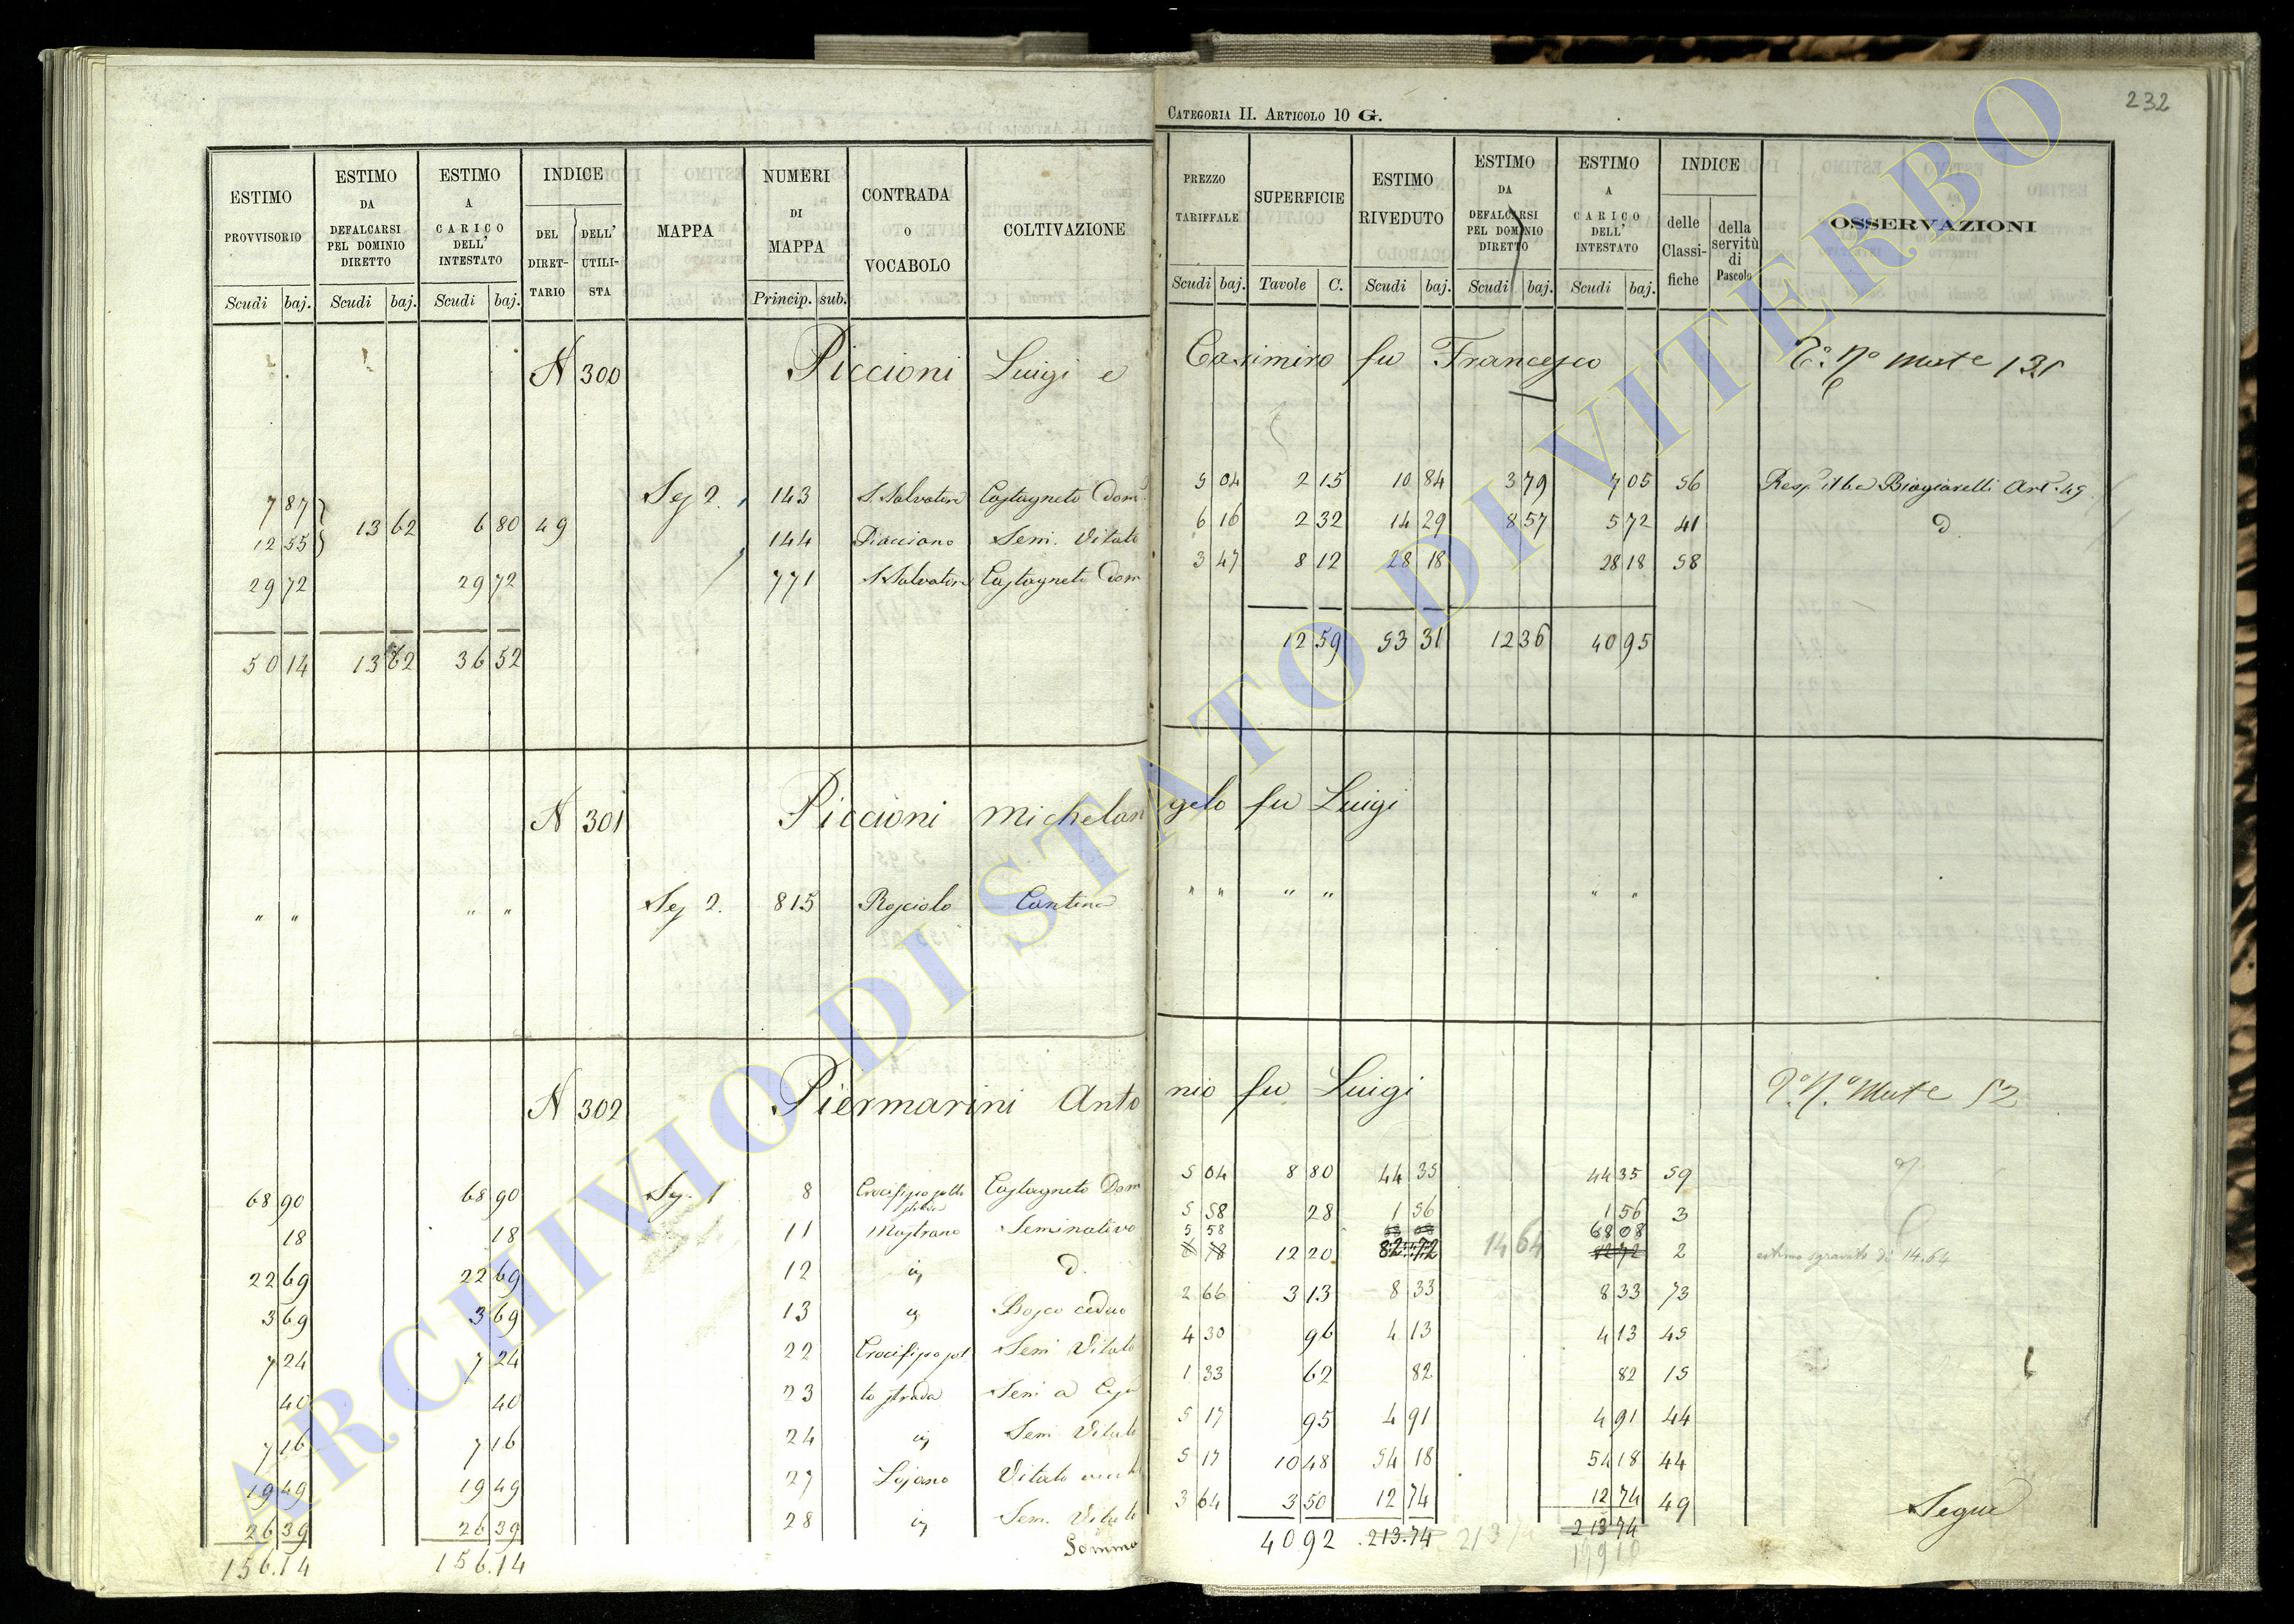 CATEGORIA II. ARTICOLO 10 G.
232
ESTIMO PROVVISORIO | ESTIMO DA DEFALCARSI PEL DOMINIO DIRETTO | ESTIMO A CARICO DELL' INTESTATO | INDICE DEL DIRETTARIO | DELL' UTILISTA | MAPPA | NUMERI DI MAPPA | CONTRADA O VOCABOLO | COLTIVAZIONE | PREZZO TARIFFALE | SUPERFICIE | ESTIMO RIVEDUTO | ESTIMO DA DEFALCARSI PEL DOMINIO DIRETTO | ESTIMO A CARICO DELL' INTESTATO | INDICE delle Classifiche | della servitù di Pascolo | OSSERVAZIONI
Scudi baj. Scudi baj. Scudi baj. Princip. sub. Scudi baj. Tavole C. Scudi baj. Scudi baj. Scudi baj.
N 300 Piccioni Luigi e Casimiro fu Francesco
7 87 13 62 6 80 49 Sez 2. 143 S. Salvatore Castagneto Dom. 5 04 2 15 10 84 3 79 7 05 56 Art. 49
12 55 144 Seni. Vitato 6 16 2 32 14 29 8 57 5 72 41 d
29 72 29 72 771 S. Salvatore Castagneto Dom 3 47 8 12 28 18 28 18 58
50 14 13 62 36 52 12 59 53 31 12 36 40 95
N 301 Piccioni Michelangelo fu Luigi
" " " " Sez 2. 815 Cantina " " " " " "
N 302 Piermarini Antonio fu Luigi
68 90 68 90 Sez. 1 8 Castagneto Dom 5 04 8 80 44 35 44 35 59
18 18 11 Seminativo 5 58 28 1 56 1 56 3
22 69 22 69 12 d. 5 58 12 20 82 72 14 64 68 08 82 72 2 estimo sgravato di 14.64
3 69 3 69 13 Bosco ceduo 2 66 3 13 8 33 8 33 73
7 24 7 24 22 Sem Vitato 4 30 96 4 13 4 13 45
40 40 23 la strada 1 33 62 82 82 15
7 16 7 16 24 Sem Vitato 5 17 95 4 91 4 91 44
19 49 19 49 27 Vitato 5 17 10 48 54 18 54 18 44
26 39 26 39 28 Sem. Vitato 3 64 3 50 12 74 12 74 49 Segue
156.14 156.14 Somma 40 92 213.74 213 74 213 74 199 10
ARCHIVIO DI STATO DI VITERBO